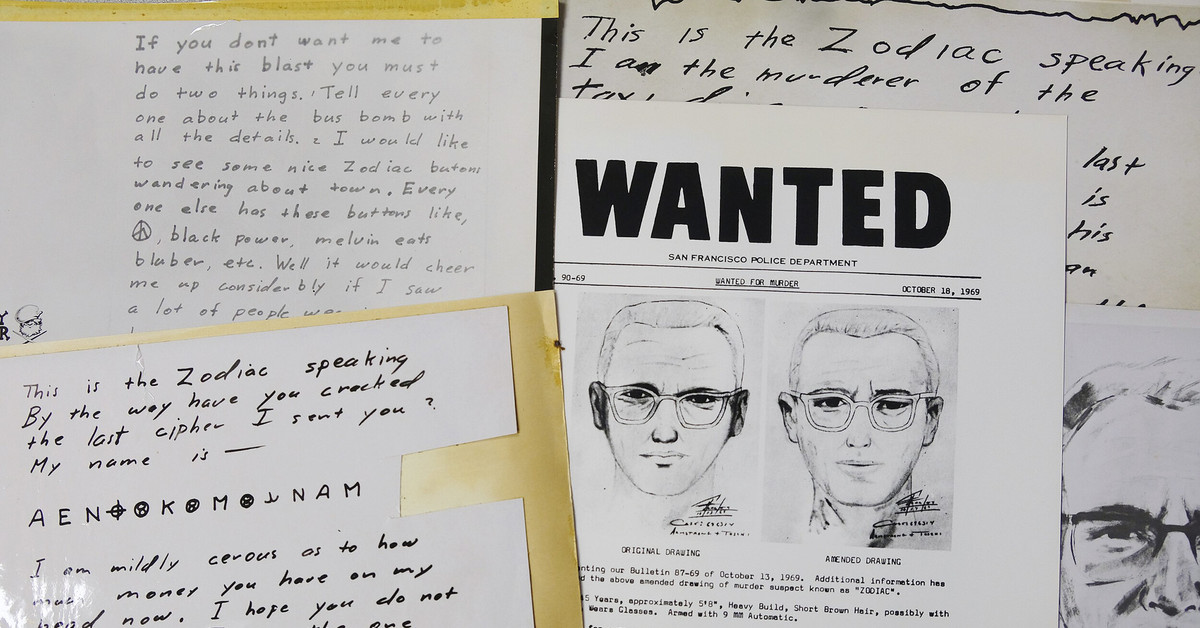 If you dont want me to
have this blast you must
do two things. 1 Tell every
one about the bus bomb with
all the details. 2 I would like
to see some nice Zodiac butons
wandering about town. Every
one else has these buttons like,
, black power, melvin eats
bluber, etc. Well it would cheer
me up considerbly if I saw
a lot of people
This is the Zodiac speaking
I am the murderer of the
taxi
last
is
his
an
This is the Zodiac speaking
By the way have you cracked
the last cipher I sent you ?
My name is —
A E N ⌖ ⊗ K ⊗ M ⊗ ⅃ N A M
I am mildly cerous as to how
much money you have on my
head now. I hope you do not
the one
WANTED
SAN FRANCISCO POLICE DEPARTMENT
90-69 WANTED FOR MURDER OCTOBER 18, 1969
ORIGINAL DRAWING AMENDED DRAWING
nting our Bulletin 87-69 of October 13, 1969. Additional information has
d the above amended drawing of murder suspect known as "ZODIAC".
5 Years, approximately 5'8", Heavy Build, Short Brown Hair, possibly with
Wears Glasses. Armed with 9 MM Automatic.